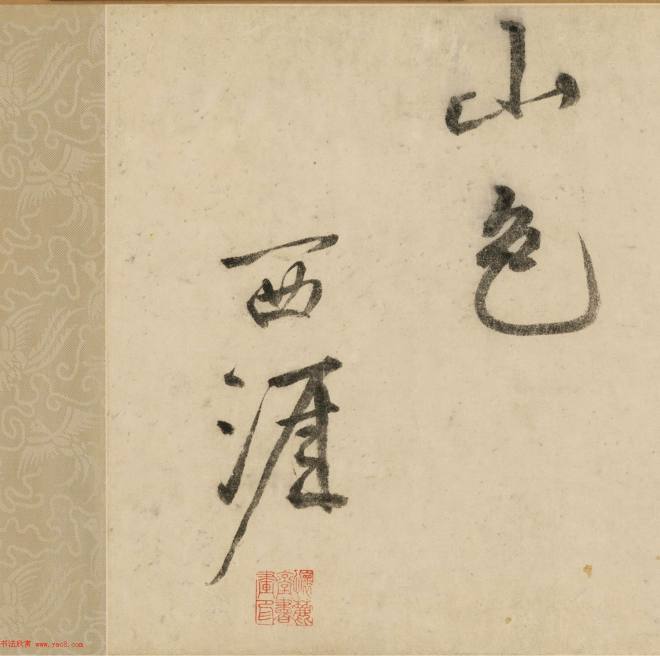 山色
西涯
书法欣赏 www.yac8.com